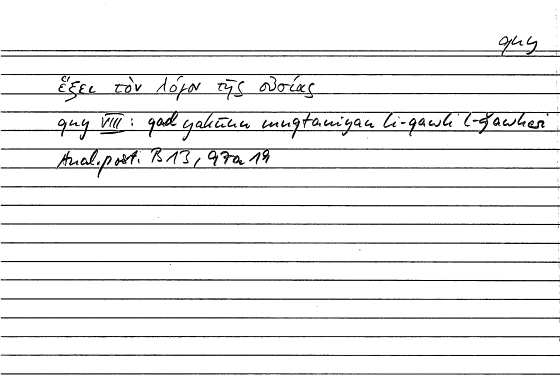 qny
ἕξει τὸν λόγον τῆς οὐσίας
qny VIII: qad yakūnu muqtaniyan li-qawli l-ǧawhari
Anal. post. B 13, 97a 19